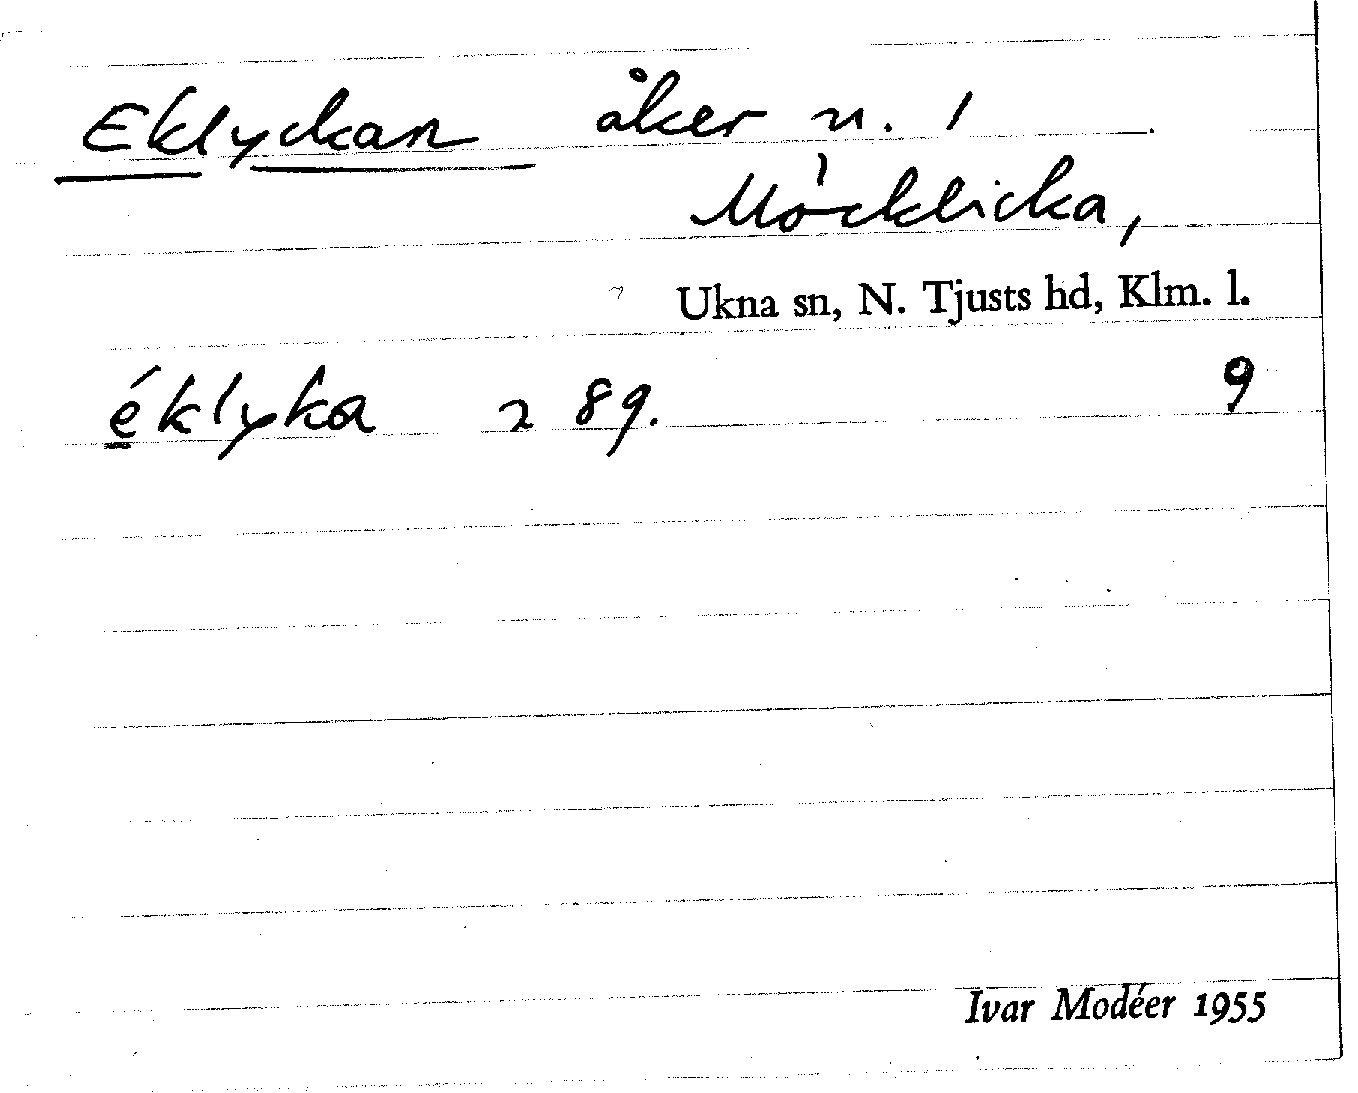 Eklyckan åker n. 1
Möcklicka,
Ukna sn, N. Tjusts hd, Klm. l.
éklyka 2 89. 9
Ivar Modéer 1955